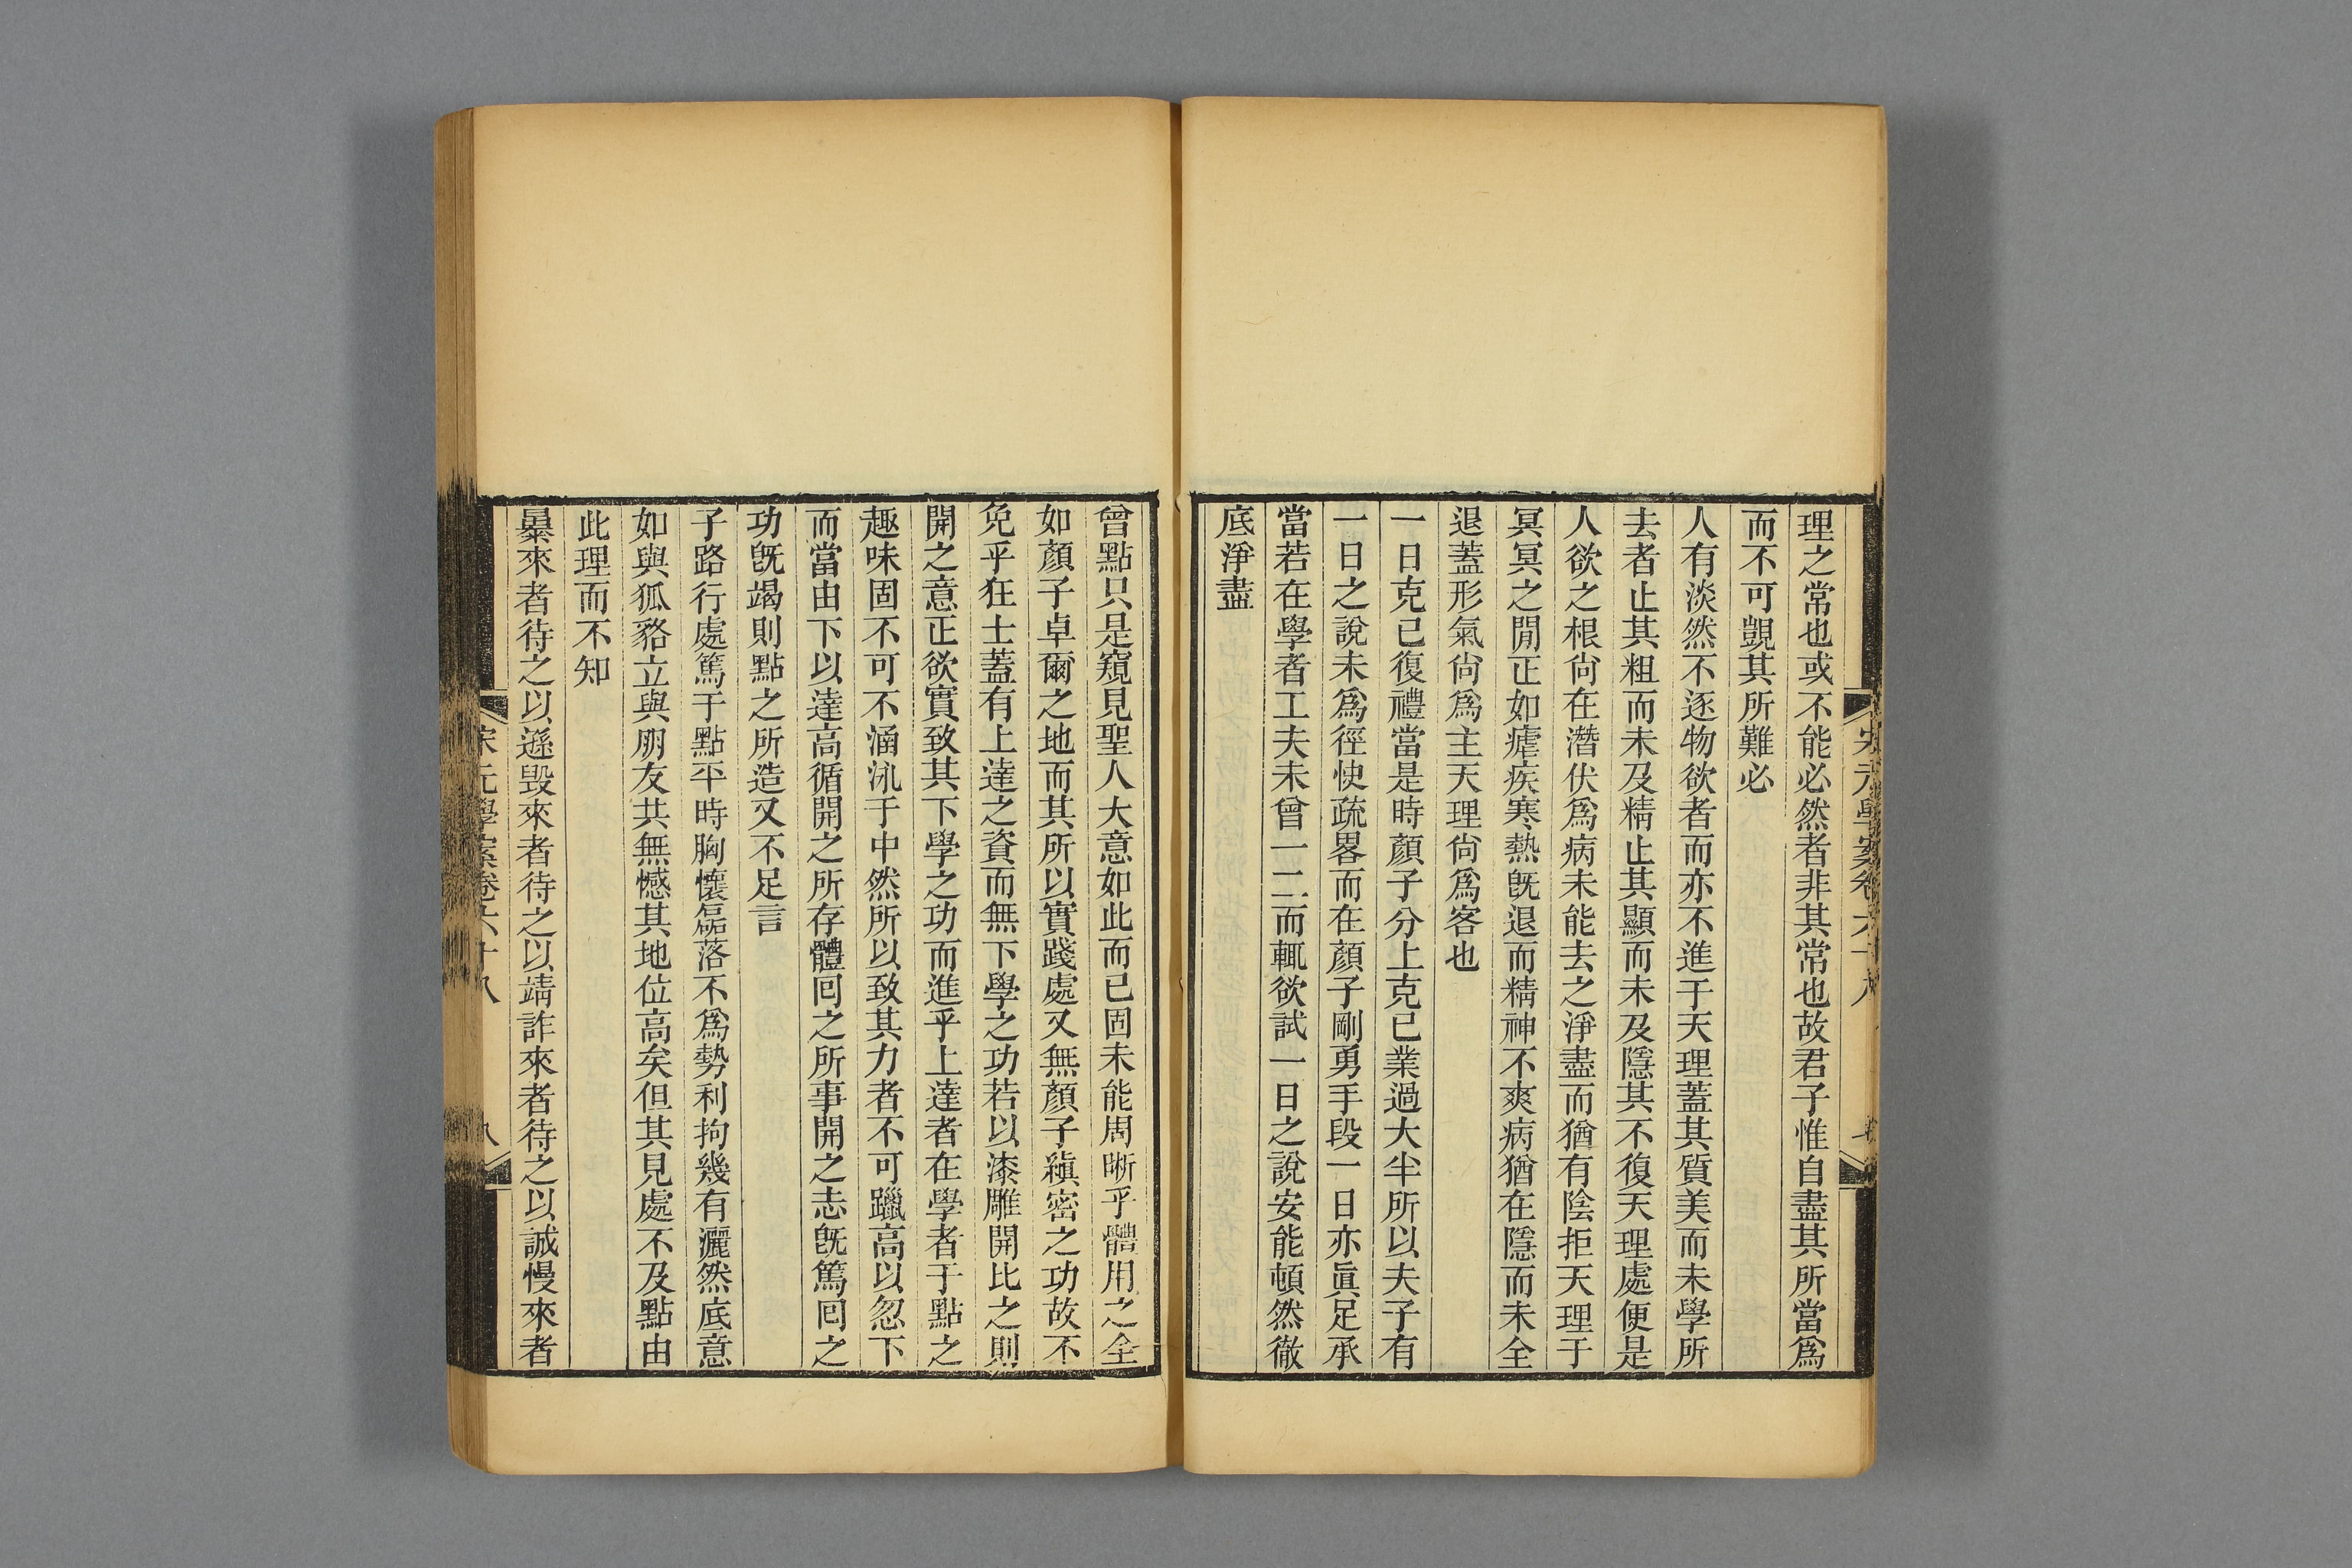 理之常也或不能必然者非其常也故君子惟自盡其所當爲
而不可覬其所難必
人有淡然不逐物欲者而亦不進于天理蓋其質美而未學所
去者止其粗而未及精止其顯而未及隱其不復天理處便是
人欲之根尙在潛伏爲病未能去之淨盡而猶有陰拒天理于
冥冥之閒正如瘧疾寒熱旣退而精神不爽病猶在隱而未全
退蓋形氣尙爲主天理尙爲客也
一日克己復禮當是時顏子分上克已業過大半所以夫子有
一日之說未爲徑快疏畧而在顏子剛勇手段一日亦眞足承
當若在學者工夫未曾一二而輒欲試一日之說安能頓然徹
底淨盡
曾點只是窺見聖人大意如此而已固未能周晰乎體用之全
如顏子卓爾之地而其所以實踐處又無顏子縝密之功故不
免乎狂士蓋有上達之資而無下學之功若以漆雕開比之則
開之意正欲實致其下學之功而進乎上達者在學者于點之
趣味固不可不涵泳于中然所以致其力者不可躐高以忽下
而當由下以達高循開之所存體囘之所事開之志旣篤囘之
功旣竭則點之所造又不足言
子路行處篤于點平時胸懷磊落不爲勢利拘幾有灑然底意
如與狐貉立與朋友共無憾其地位高矣但其見處不及點由
此理而不知
暴來者待之以遜毀來者待之以靖詐來者待之以誠慢來者
宋元學案卷六十八
八